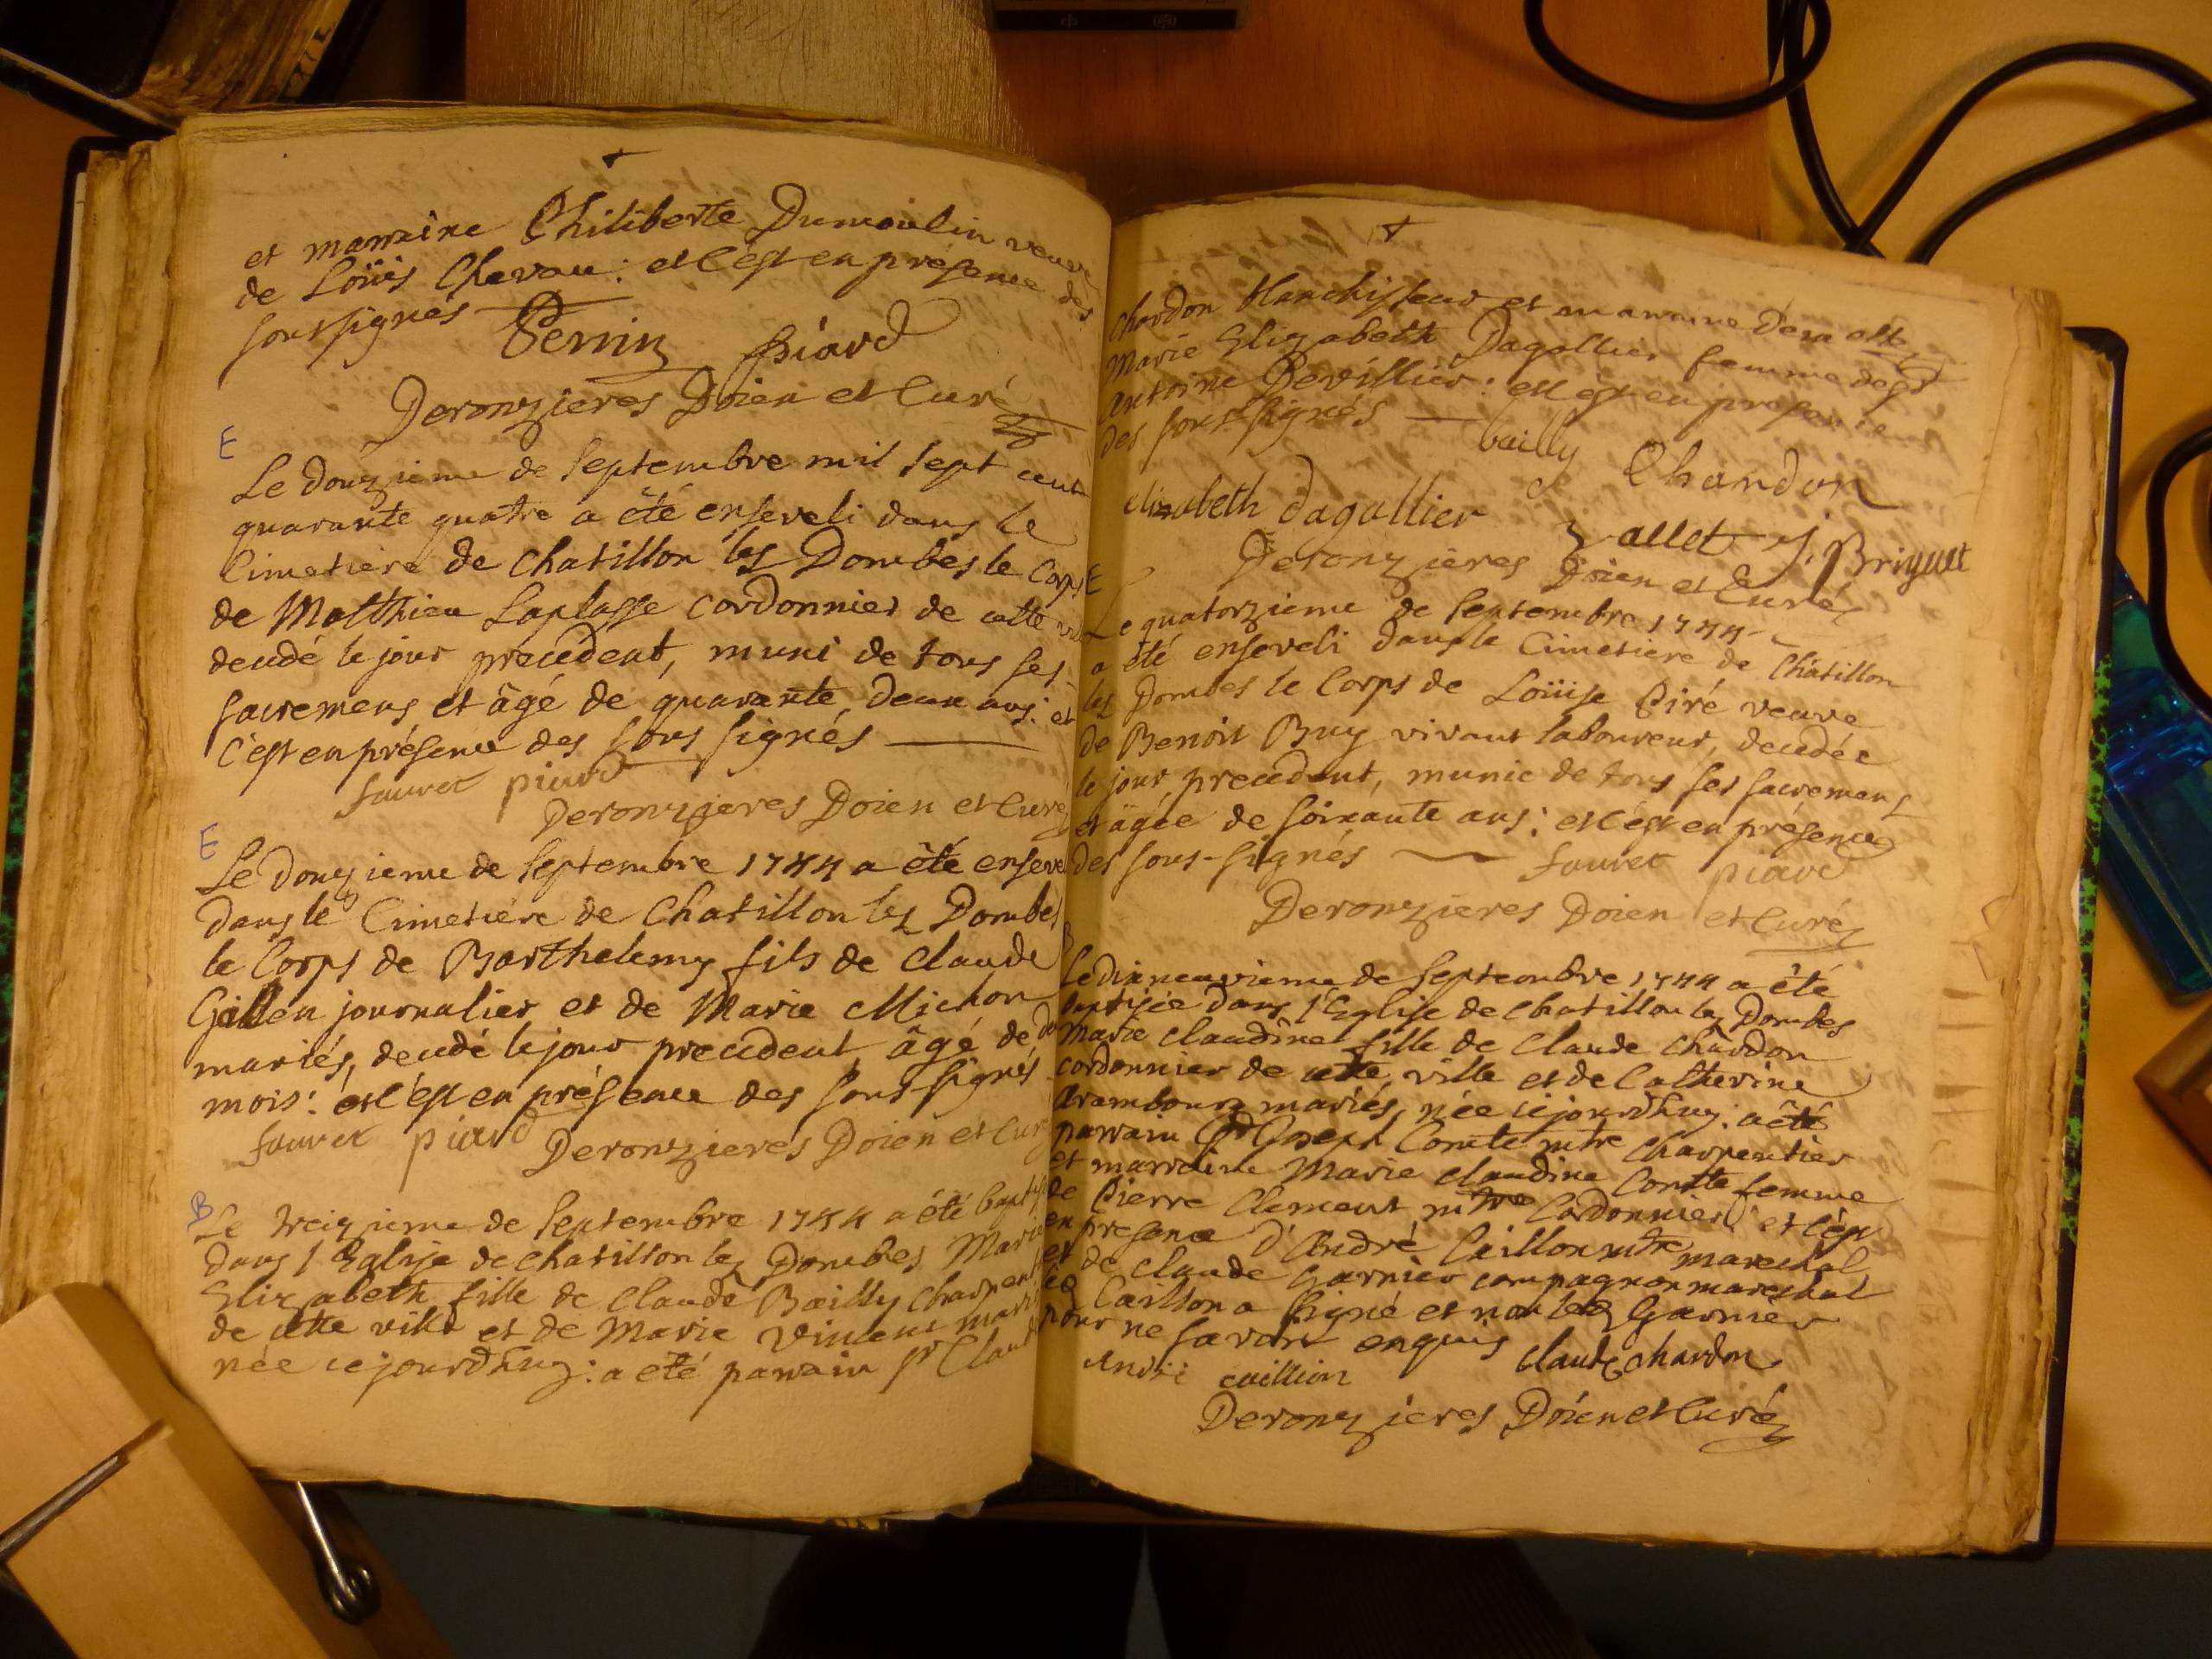 et marraine Philiberte Dumoulin veuve
de Loüis Chevau : et c'est en présence des
soussignés
Perrin piard
Deronzieres Doien et Curé
E
Le douzieme de Septembre mil sept cent
quarante quatre a été enseveli dans le
Cimetiere de Chatillon lez Dombes le Corps
de Matthieu Laplasse cordonnier de cette ville
decedé le jour precedent, muni de tous ses
sacremens et âgé de quarante deux ans : et
c'est en présence des sous signés
fauret piard
Deronzieres Doien et Curé
E
Le douzieme de Septembre 1744 a été enseve
dans le Cimetiére de Chatillon lez Dombes
le Corps de Barthelemy fils de Claude
journalier et de Marie Michon
mariés, decedé le jour precedent âgé de
mois : et c'est en présence des sous signés
fauret piard Deronzieres Doien et Curé
B
Le treizieme de Septembre 1744 a été bapt
dans l'Eglise de chatillon lez Dombes Marie
Elizabeth fille de Claude Bailly charpent
de cette ville et de Marie Vincent mari
née cejourd'huy : a eté parrain Sr Claude
Chardon blanchisseur et marraine
Marie Elizabeth Dagallier femme de Sr
Antoine Devillier : et c'est en présence
des soussignés bailly Chardon
elizabeth dagallier Vallet J. Briguet
Deronzieres Doien et Curé
E
Le quatorzieme de Septembre 1744
a été enseveli dans le Cimetiere de Châtillon
lez Dombes le Corps de Loüise Piré veuve
de Benoit Buy vivant laboureur, decedée
le jour precedent, munie de tous ses sacremens
et âgée de soixante ans : et c'est en présence
des sous-signés fauret piard
Deronzieres Doien et Curé
B
Le dixneuvieme de Septembre 1744 a été
baptisée dans l'Eglise de Chatillon lez Dombes
Marie Claudine fille de Claude Chardon
cordonnier de cette ville et de Catherine
Arambourg mariés, née cejourd'huy : a été
parrain Sr Joseph Comte mtre Charpentier
et marraine Marie Claudine Comte femme
de Pierre Clement mtre Cordonnier : et c'est
en presence d'André Caillon mtre marechal
et de Claude Garnier compagnon marechal
Caillon a signé et non led Garnier
pour ne savoir enquis claude chardon
André caillion
Deronzieres Doien et Curé